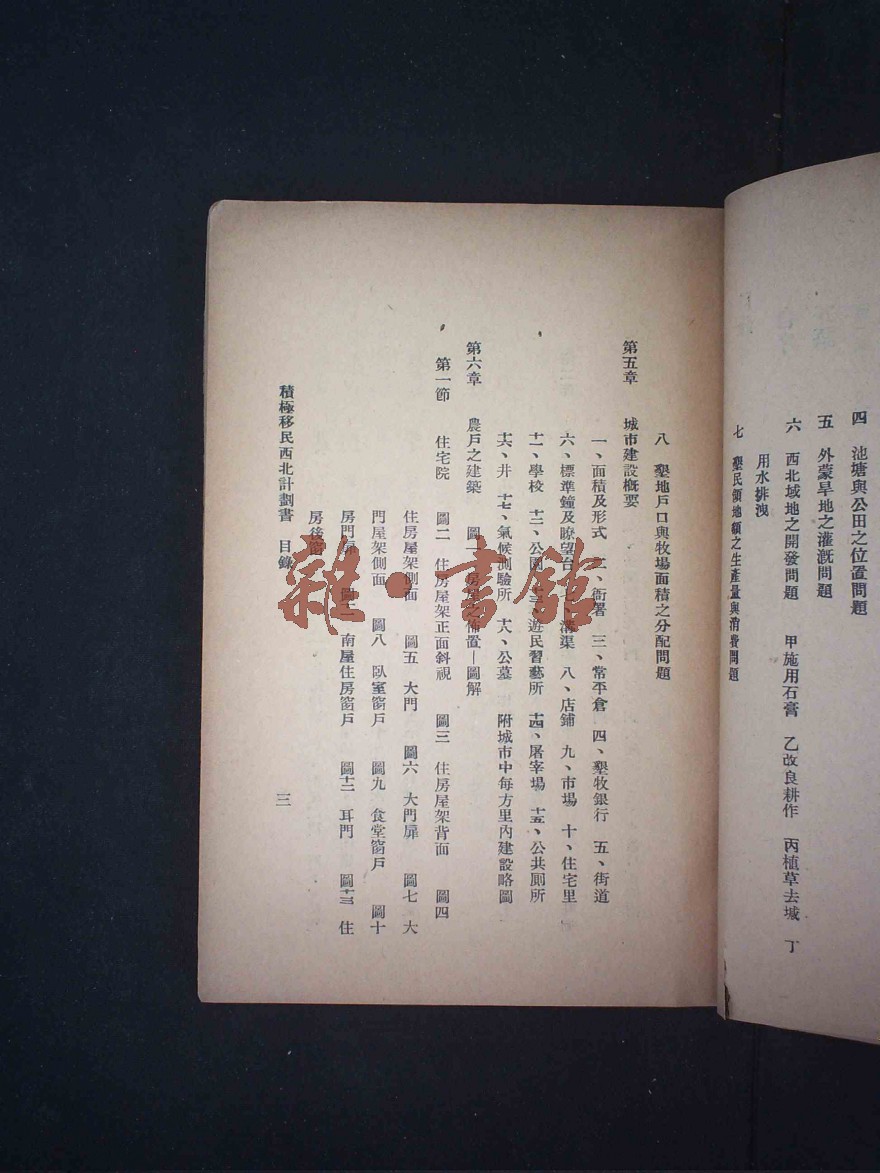 四　池塘與公田之位置問題
五　外蒙旱地之灌漑問題
六　西北域地之開發問題　甲施用石膏　乙改良耕作　丙植草去堿　丁
用水排洩
七　墾民領地額之生產量與消費問題
八　墾地戶口與牧場面積之分配問題
第五章　城市建設槪要
一、面積及形式　二、衙署　三、常平倉　四、墾牧銀行　五、街道
六、標準鐘及瞭望台　溝渠　八、店鋪　九、市場　十、住宅里
十一、學校　十二、公園　十三、遊民習藝所　十四、屠宰場　十五、公共厠所
十六、井　十七、氣候測驗所　十八、公墓　附城市中每方里內建設略圖
第六章　農戶之建築　圖一　房屋之佈置—圖解
第一節　住宅院　圖二　住房屋架正面斜視　圖三　住房屋架背面　圖四
住房屋架側面　圖五　大門　圖六　大門扉　圖七　大
門屋架側面　圖八　臥室窗戶　圖九　食堂窗戶　圖十
房門扉　圖十一　南屋住房窗戶　圖十二　耳門　圖十三　住
房後窗
積極移民西北計劃書　目錄
三
雜·書館